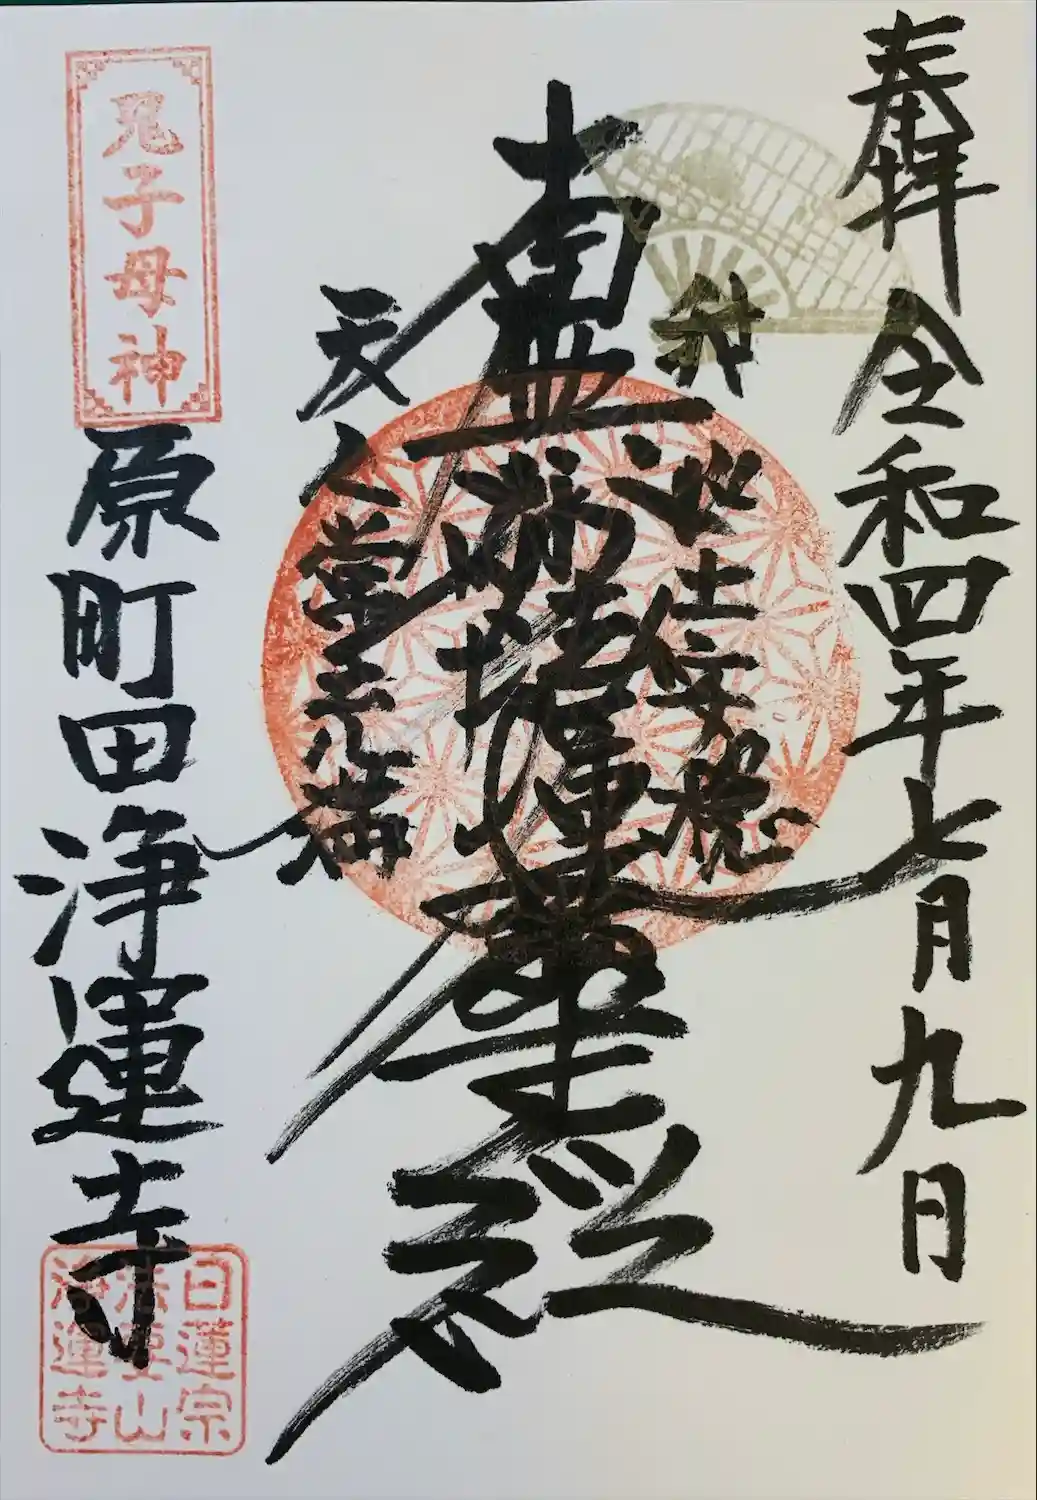 奉拝 令和四年七月九日
我此土安穏
南無妙法蓮華経
天人常充満
鬼子母神
原町田浄運寺
日蓮宗
法要山
浄運寺